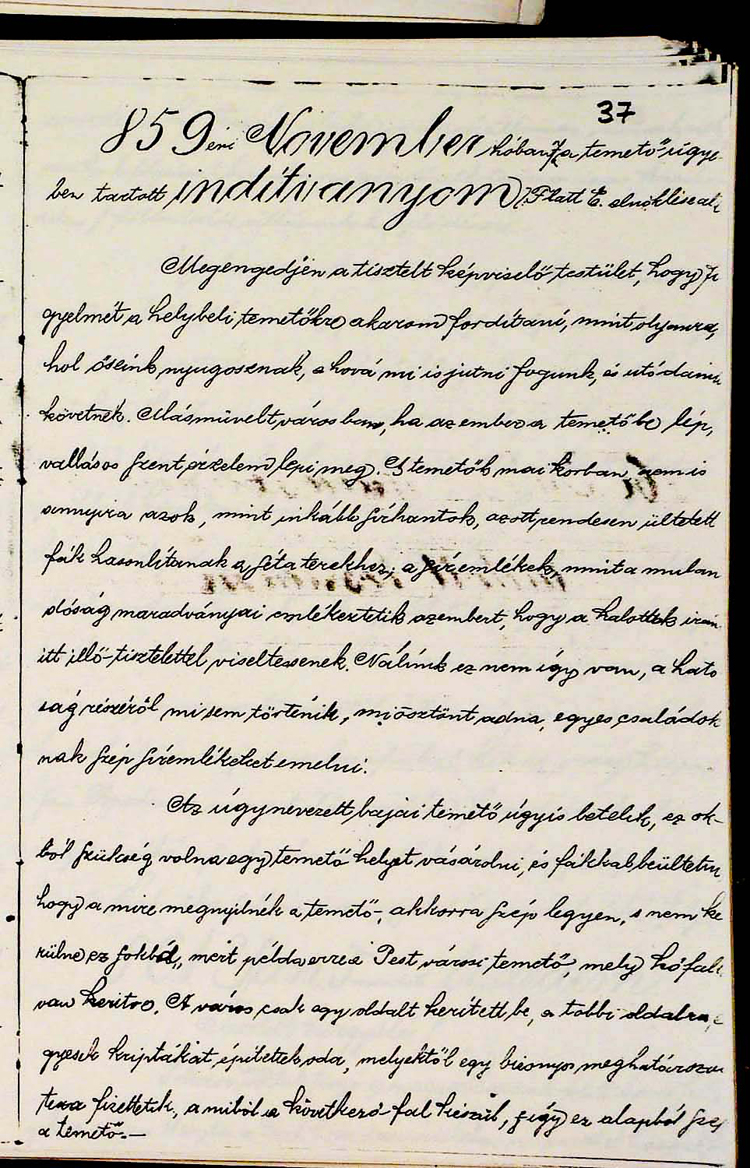 37
859 évi November hóban, a temető ügyé-
ben tartott indítványom (Flatt E. elnöklése al
Megengedjen a tisztelt képviselő testület, hogy fi
gyelmét a helybeli temetőkre akarom fordítani, mint olyanra,
hol őseink nyugosznak, a hová mi is jutni fogunk, és utódaink
követnek. Másművelt városban, ha az ember a temetőbe lép,
vallásos szent érzelem lepi meg. A temetők mai korban nem is
annyira azok, mint inkább sírhantok, azott rendesen ültetett
fák hasonlítanak a séta terekhez, a síremlékek, mint a mulan
dóság maradványai emlékeztetik azembert, hogy a halottak irán
itt illő tisztelettel viseltessenek. Nálunk ez nem így van, a ható
ság részéről mi sem történik, mi ösztönt adna, egyes családok
nak szép síremlékeket emelni.
Az úgynevezett bajai temető úgyis betelik, ez ok-
ból szükség volna egy temető helyet vásárolni, és fákkal beültetni
hogy a mire megnyílnék a temető, akkorra szép legyen, s nem ke
rülne ez sokba, mert példa erre a Pest városi temető, mely kőfal
van kerítve. A város csak egy oldalt kerített be, a többi oldalra e
gyesek kriptákat építettek oda, melyektől egy bizonyos meghatározo
taxa fizettetik, a miből a következő fal kiészül, s így ez alapból sze
a temető.—